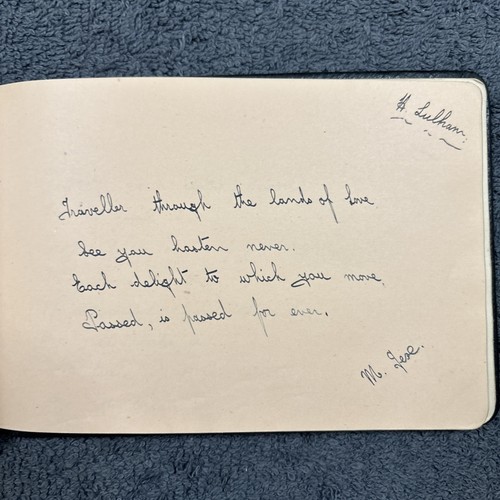 H Lulham.
Traveller through the lands of love
See you hasten never.
Each delight to which you move,
Passed, is passed for ever.
M.